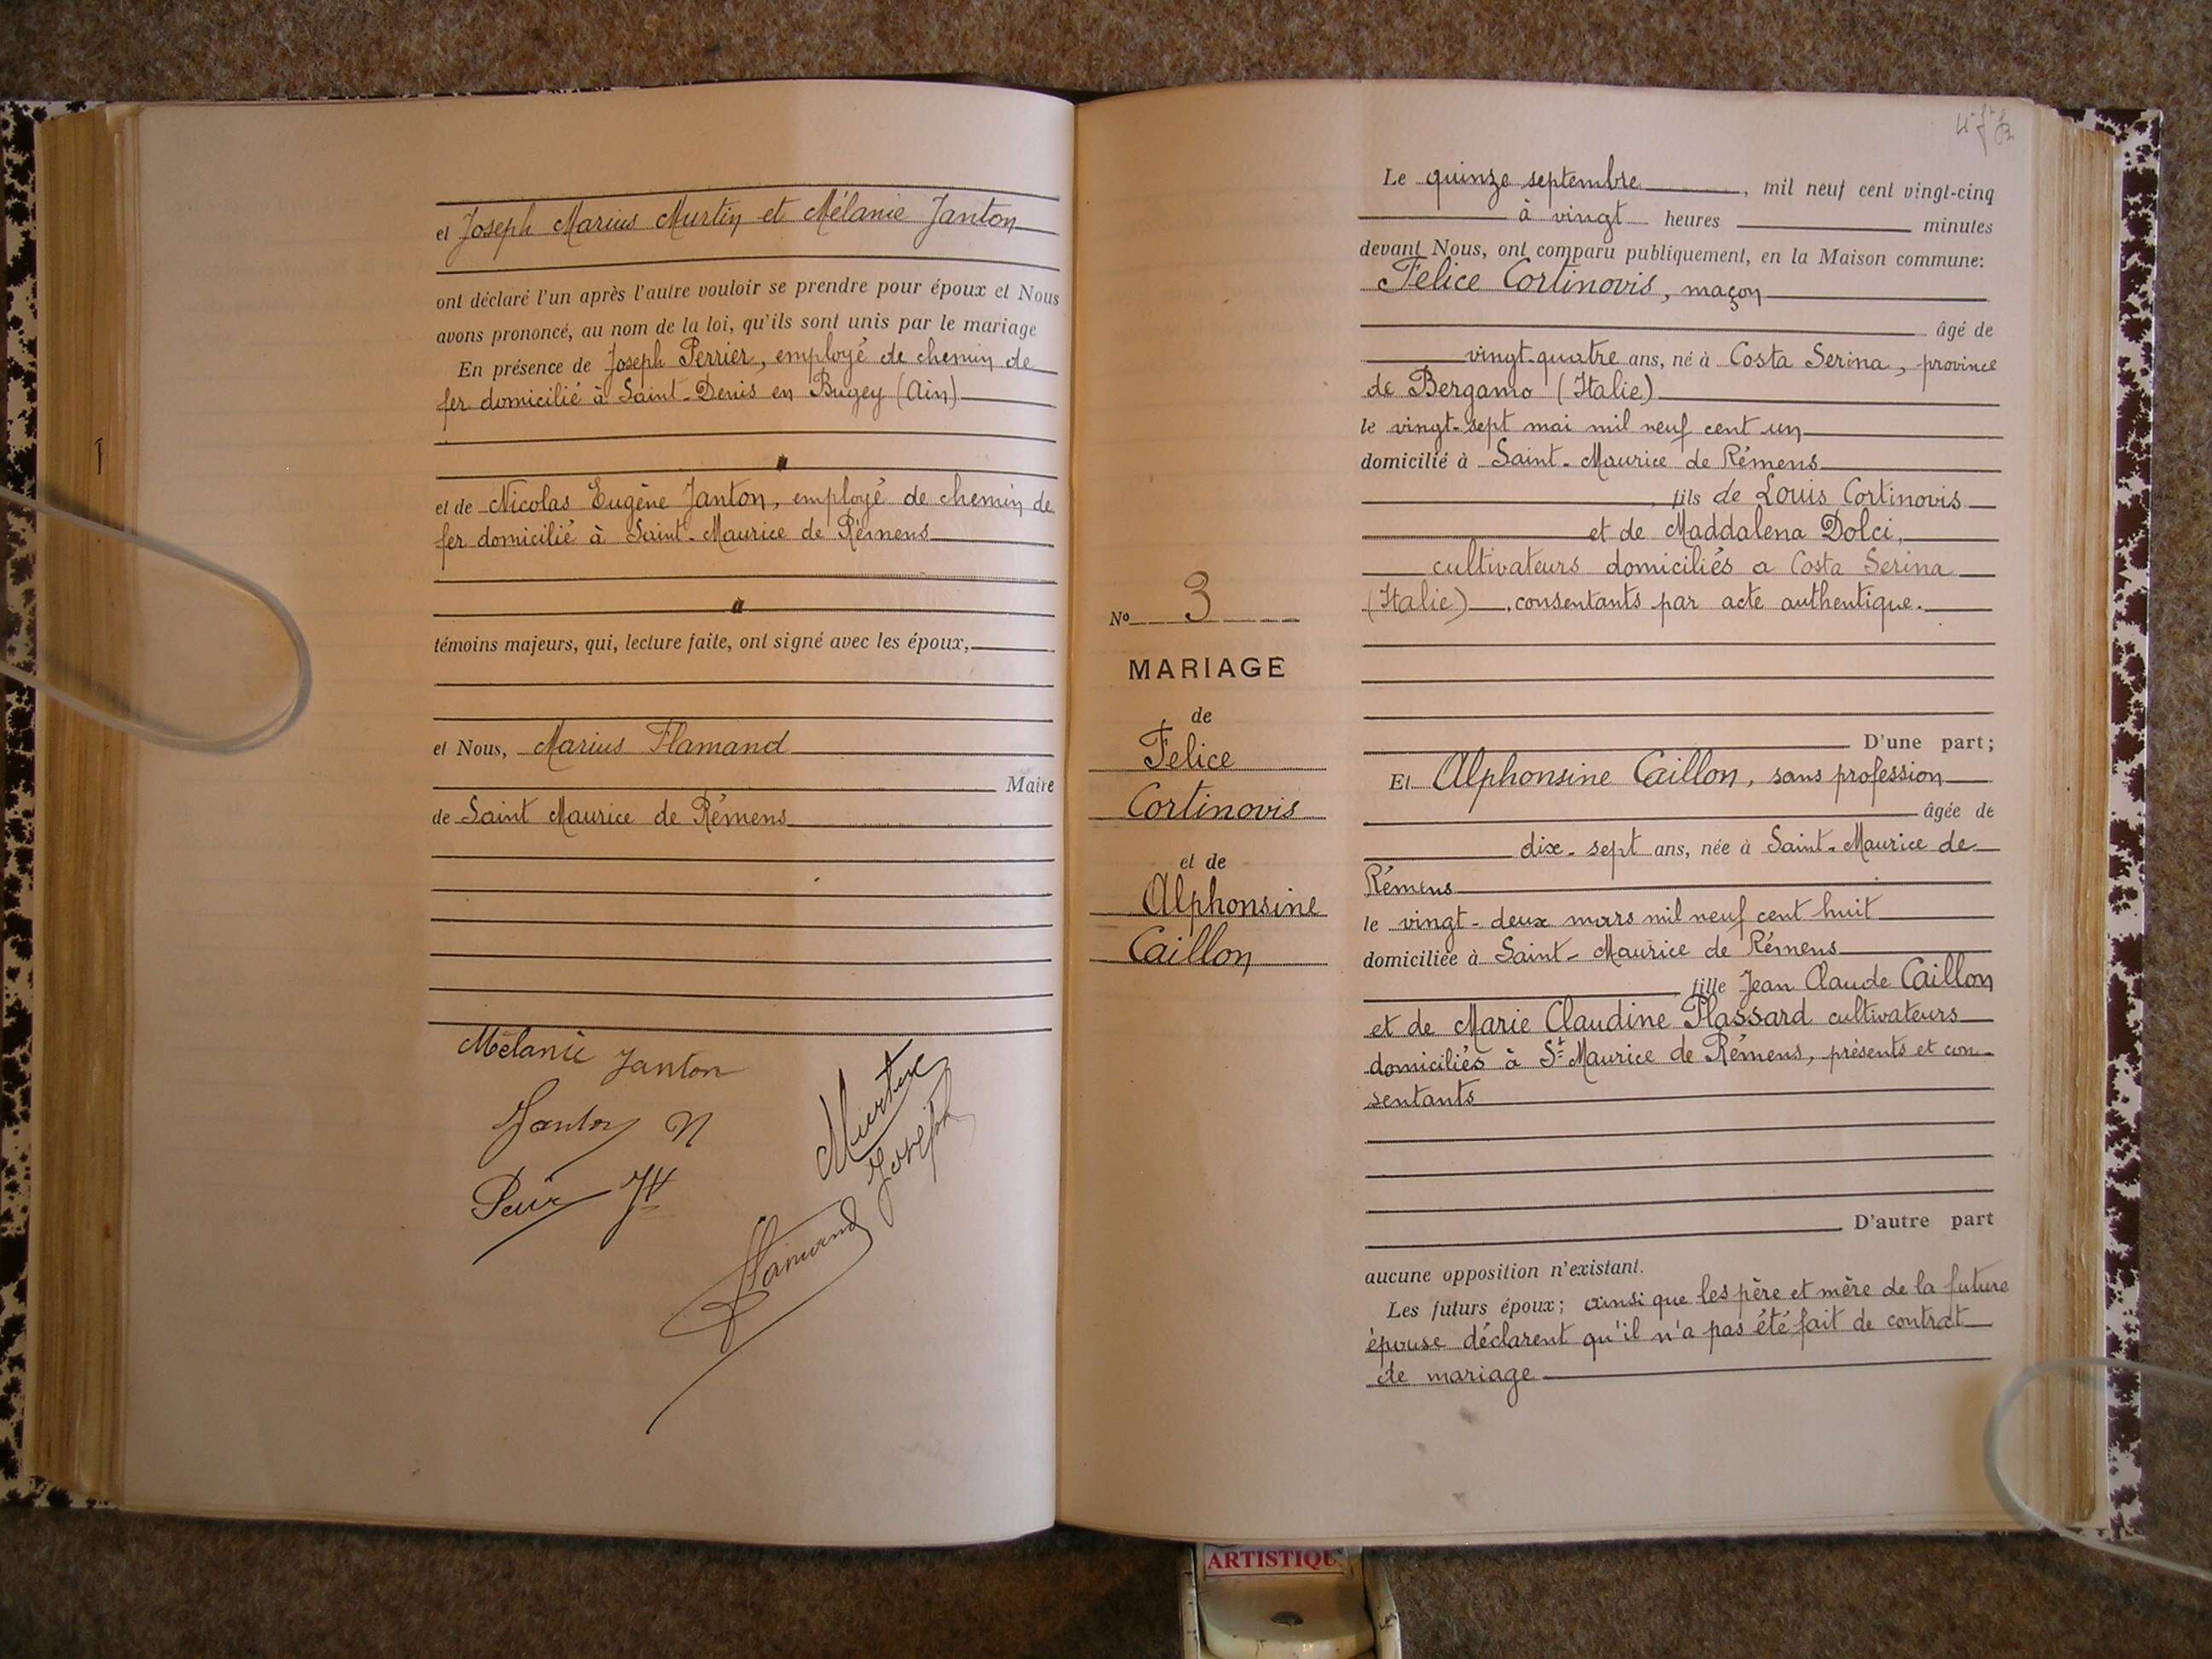 et Joseph Marius Murtin et Mélanie Janton
ont déclaré l'un après l'autre vouloir se prendre pour époux et Nous
avons prononcé, au nom de la loi, qu'ils sont unis par le mariage
En présence de Joseph Perrier, employé de chemin de
fer domicilié à Saint-Denis en Bugey (Ain)
et de Nicolas Eugène Janton, employé de chemin de
fer domicilié à Saint-Maurice de Rémens
témoins majeurs, qui, lecture faite, ont signé avec les époux,
et Nous, Marius Flamand
Maire
de Saint Maurice de Rémens
Mélanie Janton
Janton N
Joseph
Flamand
Le quinze septembre, mil neuf cent vingt-cinq
à vingt heures minutes
devant Nous, ont comparu publiquement, en la Maison commune:
Felice Cortinovis, maçon
âgé de
vingt-quatre ans, né à Costa Serina, province
de Bergamo (Italie)
le vingt-sept mai mil neuf cent un
domicilié à Saint-Maurice de Rémens
, fils de Louis Cortinovis
et de Maddalena Dolci,
cultivateurs domiciliés a Costa Serina
(Italie), consentants par acte authentique.
D'une part;
Et Alphonsine Caillon, sans profession
âgée de
dix-sept ans, née à Saint-Maurice de
Rémens
le vingt-deux mars mil neuf cent huit
domiciliée à Saint-Maurice de Rémens
, fille Jean Claude Caillon
et de Marie Claudine Plassard cultivateurs
domiciliés à St Maurice de Rémens, présents et con-
sentants
D'autre part
aucune opposition n'existant.
Les futurs époux; ainsi que les père et mère de la future
épouse déclarent qu'il n'a pas été fait de contrat
de mariage
No 3
MARIAGE
de
Felice
Cortinovis
et de
Alphonsine
Caillon
ARTISTIQU